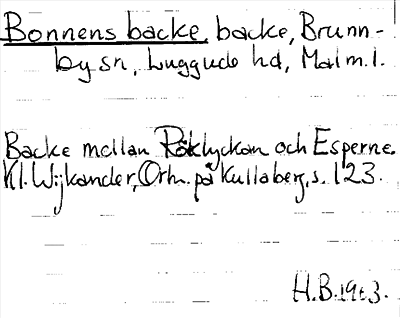 Bonnens backe, backe, Brunn-
by sn, Luggude hd, Malm. l.
Backe mellan Röklyckan och Esperne.
Kl. Wijkander, Ortn. på Kullaberg, s. 123.
H.B. 1963.